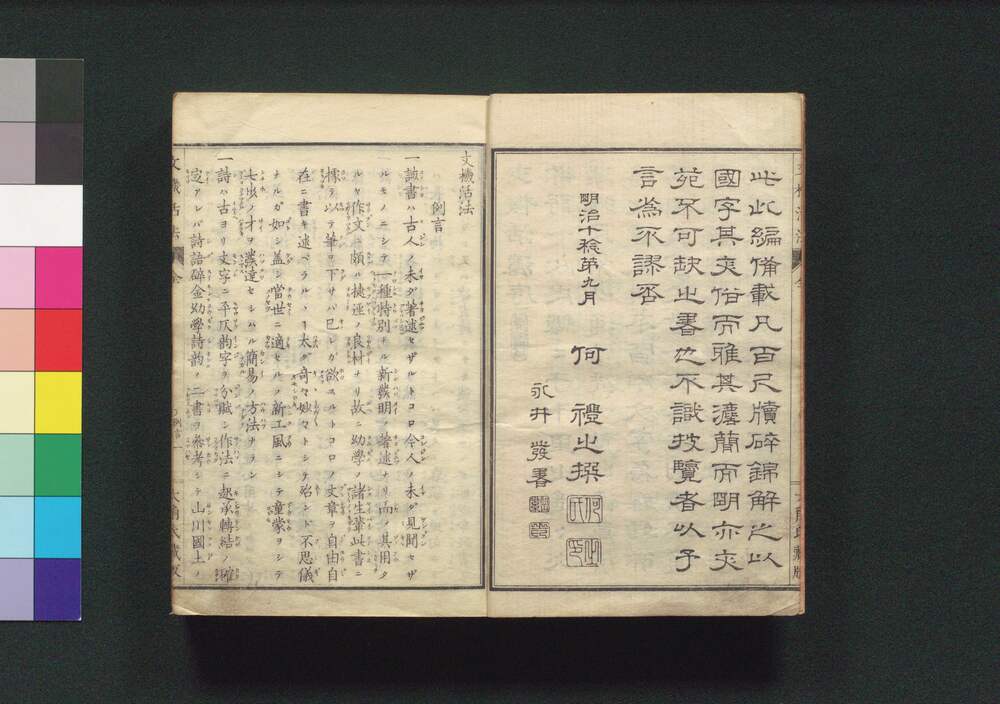 此此編備載凡百尺牘碎錦解之以
國字其夾俗而雅其瀍簡而明亦文
苑不可缺之書也不識披覽者以予
言為不謬否
明治十稔第九月
何 禮之撰
永井 發書
文機活法
例言
一誠書ハ古人ノ未ダ著述セザルトコロ今人ノ未ダ見聞セザ
ルモノニシテ一種特別ナル新發明ノ著述ナリ而シ其用タ
ルヤ作文ニ頗ル捷逕ノ良材ナリ故ニ幼學ノ諸生輩此書ニ
據テ筆ヲ下サバ己レガ欲スルトコロノ文章ヲ自由自
在ニ書キ述ベラルヽ太ダ奇々妙々トシテ殆ンド不思議
ナルガ如シ盖シ當世ニ適セルノ新工風ニシテ童蒙ヲシテ
七步ノ才ヲ發達セシムル簡易ノ方法ナラン
一詩ハ古ヨリ文字ニ平仄韵字ヲ分賦シ作法ニ起承轉結ノ確
定アレバ詩語碎金幼學詩韵ノ二書ヲ參考シテ山川國土ノ
文機活法
全